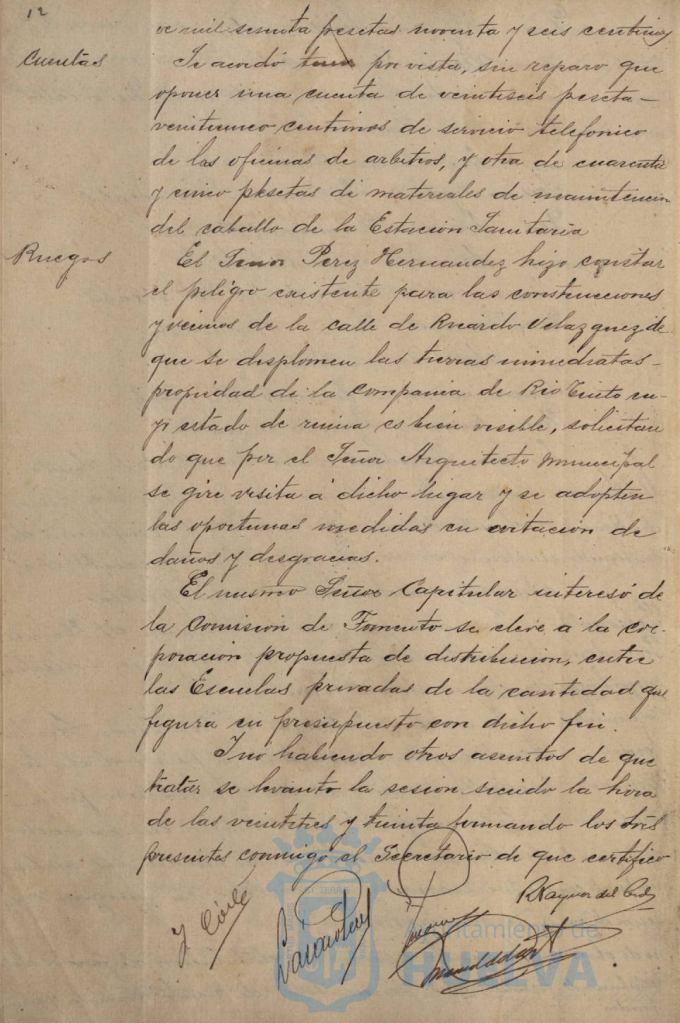 12
ve mil sesenta pesetas noventa y seis centimos
Cuentas
Se acordó por vista, sin reparo que
oponer una cuenta de veintiseis peseta-
veinticinco centimos de servicio telefonico
de las oficinas de arbitrios, y otra de cuarenta
y cinco pesetas de materiales de manutencion
del caballo de la Estación Sanitaria
Ruegos
El Señor Perez Hernandez hizo constar
el peligro existente para las construcciones
y vecinos de la calle de Ricardo Velazquez de
que se desplomen las tierras inmediatas-
propiedad de la Compania de Rio Tinto cu-
yo estado de ruina es bien visible, solicitan
do que por el Señor Arquitecto Municipal
se gire visita á dicho lugar y se adopten
las oportunas medidas en evitación de
daños y desgracias.
El mismo Señor Capitular interesó de
la Comisión de Fomento se eleve á la cor-
poración propuesta de distribución, entre
las Escuelas privadas de la cantidad que
figura en presupuesto con dicho fin.
Y no habiendo otros asuntos de que
tratar se levanto la sesion siendo la hora
de las veintitres y treinta firmando los Sres
presentes conmigo el Secretario de que certifico
Ayuntamiento de
HUELVA